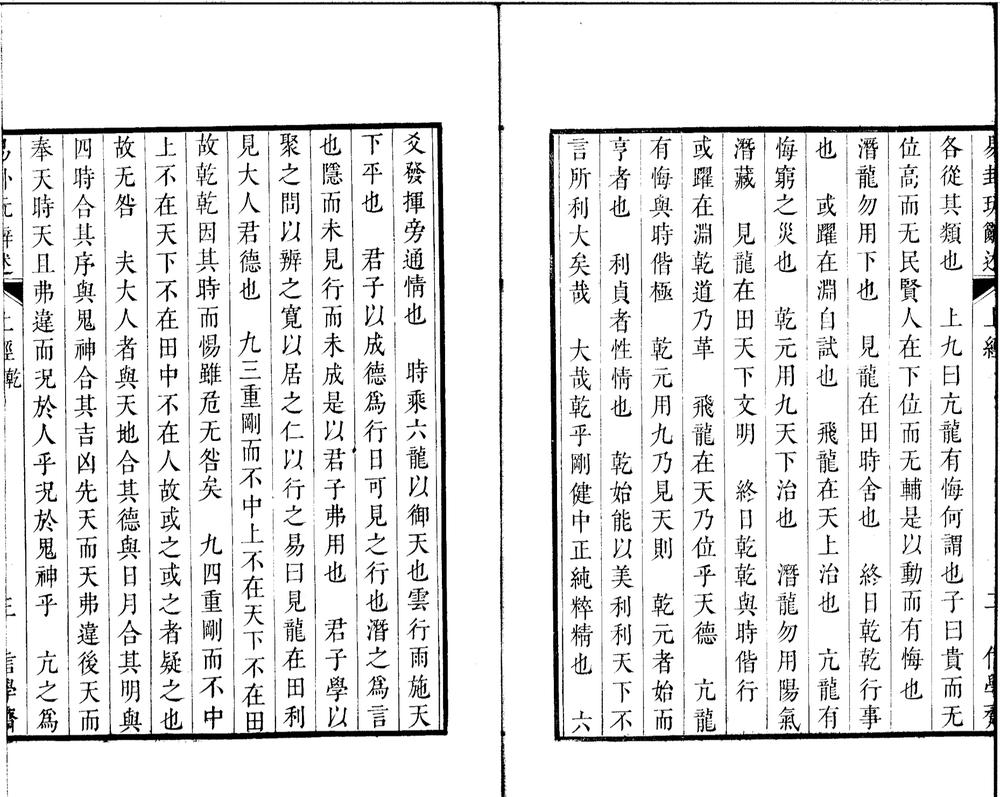 各從其類也　上九曰亢龍有悔何謂也子曰貴而无
位高而无民賢人在下位而无輔是以動而有悔也
潛龍勿用下也　見龍在田時舍也　終日乾乾行事
也　或躍在淵自試也　飛龍在天上治也　亢龍有
悔窮之災也　乾元用九天下治也　潛龍勿用陽氣
潛藏　見龍在田天下文明　終日乾乾與時偕行
或躍在淵乾道乃革　飛龍在天乃位乎天德　亢龍
有悔與時偕極　乾元用九乃見天則　乾元者始而
亨者也　利貞者性情也　乾始能以美利利天下不
言所利大矣哉　大哉乾乎剛健中正純粹精也　六
爻發揮旁通情也　時乘六龍以御天也雲行雨施天
下平也　君子以成德爲行日可見之行也潛之爲言
也隱而未見行而未成是以君子弗用也　君子學以
聚之問以辨之寬以居之仁以行之易曰見龍在田利
見大人君德也　九三重剛而不中上不在天下不在田
故乾乾因其時而惕雖危无咎矣　九四重剛而不中
上不在天下不在田中不在人故或之或之者疑之也
故无咎　夫大人者與天地合其德與日月合其明與
四時合其序與鬼神合其吉凶先天而天弗違後天而
奉天時天且弗違而況於人乎況於鬼神乎　亢之爲
上經乾